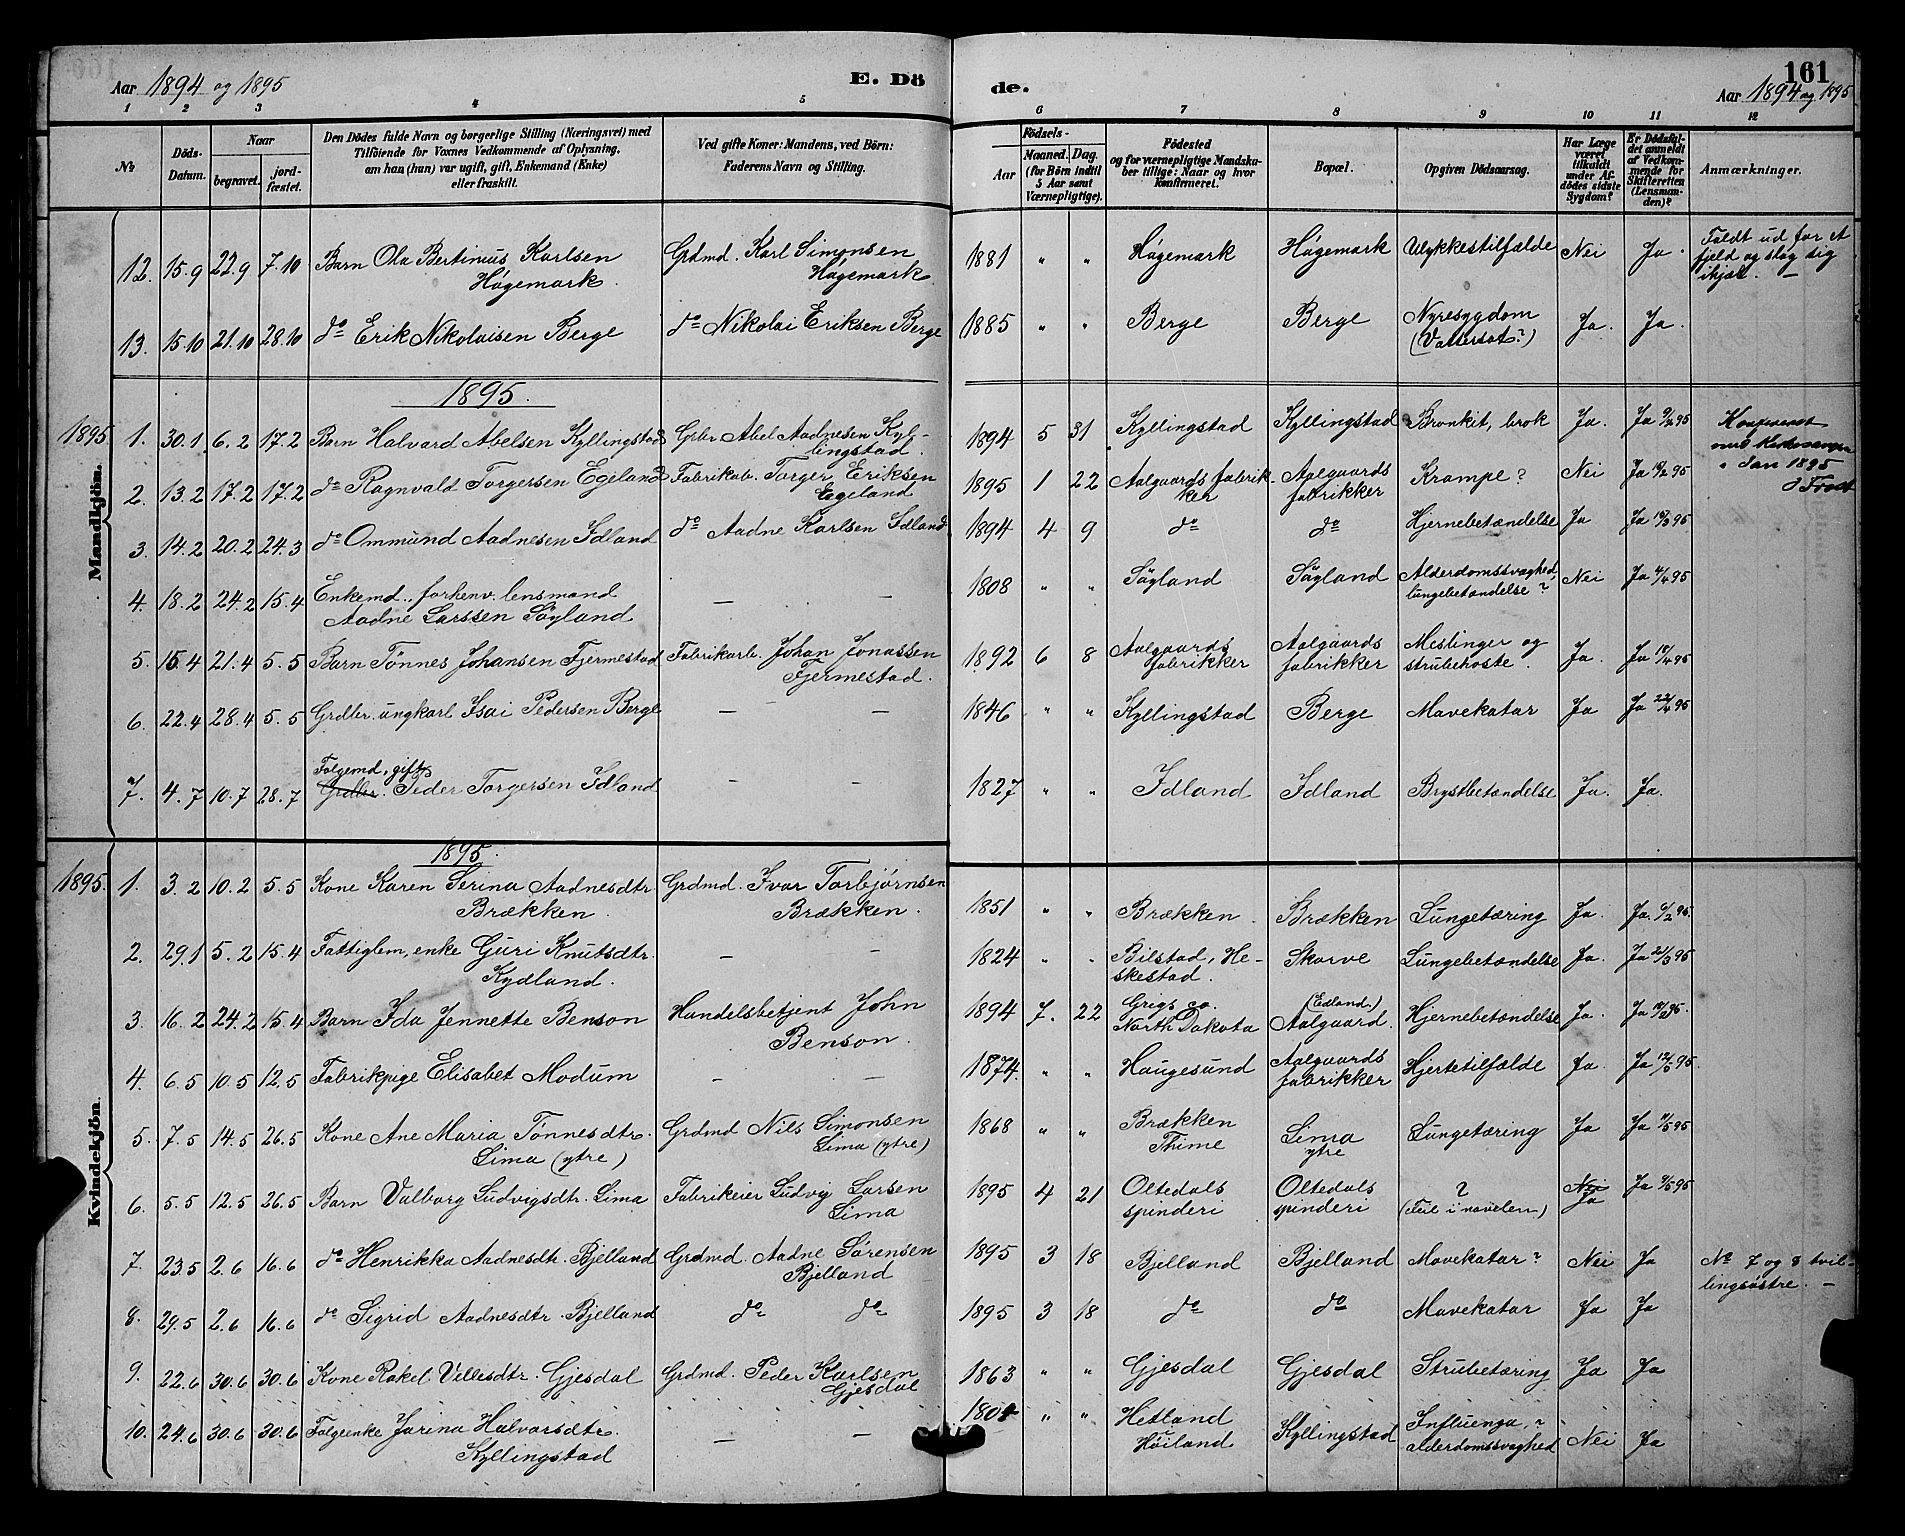 Aar 1894 og 1895
E. Dö
de.
161
Aar 1894 og 1895
1 2 3 4 5 6 7 8 9 10 11 12
№
Döds-Datum.
Naar
begravet.
jordfæstet.
Den Dödes fulde Navn og borgerlige Stilling (Næringsvei) med
Tilföiende for Voxnes Vedkommende af Oplysning,
om han (hun) var ugift, gift, Enkemand (Enke)
eller fraskilt.
Ved gifte Koner: Mandens, ved Börn:
Faderens Navn og Stilling.
Födsels-
Aar
Maaned. Dag.
(for Börn indtil
5 Aar samt
Værnepligtige).
Födested
og for værnepligtige Mandska-
ber tillige: Naar og hvor
konfirmeret.
Bopæl.
Opgiven Dödsaarsag.
Har Læge
været
tilkaldt
under Af-
dödes sidste
Sygdom?
Er Dödsfal-
det anmeldt
af Vedkom-
mende for
Skifteretten
(Lensman-
den)?
Anmærkninger.
Mandkjön.
12. 15.9 22.9 7.10 Barn Ola Bertinius Karlsen Grdmd. Karl Simonsen 1881 " " Høgemark Høgemark Ulykkestilfælde Nei Ja. Faldt ud for et
Høgemark. Høgemark. fjeld og slog sig
ihjæl. –
13. 15.10 21.10 28.10 do Erik Nikolaisen Berge do Nikolai Eriksen Berge 1885 " " Berge Berge Nyresygdom Ja. Ja.
(Vattersot?)
1895.
1895 1. 30.1 6.2 17.2 Barn Halvard Abelsen Kyllingstad Grbr. Abel Aadnesen Kyl- 1894 5 31 Kyllingstad Kyllingstad Bronkit, brok Ja. Ja 9/2 95
lingstad.
1895
2. 13.2 17.2 17.2 do Ragnvald Torgersen Egeland Fabrikab. Torger Eriksen 1895 1 22 Aalgaards fabrik- Aalgaards Krampe? Nei Ja
Egeland ker fabrikker
3. 14.2 20.2 24.3 do Ommund Aadnesen Idland do Aadne Karlsen Idland 1894 4 9 do do Hjernebetændelse Ja Ja
4. 18.2 24.2 15.4 Enkemd., forhenv. lensmand – – 1808 " " Søyland Søyland Alderdomssvaghed, Nei Ja
Aadne Larssen Søyland lungebetændelse?
5. 15.4 21.4 5.5 Barn Tønnes Johansen Fjermestad Fabrikarb. Johan Jonassen 1892 6 8 Aalgaards Aalgaards Meslinger og Ja. Ja
Fjermestad. fabrikker fabrikker strubehoste.
6. 22.4 28.4 5.5 Grdbr. ungkarl Isai Pedersen Berge – – 1846 " " Kyllingstad Berge Mavekatar Ja Ja 22/4 95
Folgemd, gift
7. 4.7 10.7 28.7 Grdbr. Peder Torgersen Idland – – 1827 " " Idland Idland Brystbetændelse Ja. Ja.
Kvindekjön.
1895.
1895. 1. 3.2 10.2 5.5 Kone Karen Serina Aadnesdtr. Grdmd. Ivar Torbjørnsen 1851 " " Brækken. Brækken Lungetæring Ja. Ja
Brækken. Brækken.
2. 29.1 5.2 15.4 Fattiglem, enke Guri Knutsdtr. – – 1824 " " Bilstad, He- Skorve Lungebetændelse Ja. Ja 21/3 95
Kydland. skestad.
3. 16.2 24.2 15.4 Barn Ida Jennette Benson Handelsbetjent John 1894 7. 22 Grigs co. (Edland) Hjernebetændelse Ja. Ja
Benson. North Dakota Aalgaard.
4. 6.5 10.5 12.5 Fabrikpige Elisabet Modum – – 1874. " " Haugesund Aalgaards Hjertetilfælde Ja. Ja
fabrikker
5. 7.5 14.5 26.5 Kone Ane Maria Tønnesdtr. Grdmd Nils Simonsen 1868 " " Brækken Lima Lungetæring Ja Ja
Lima (ytre) Lima (ytre) Thime ytre
6. 5.5 12.5 26.5 Barn Valborg Ludvigsdtr. Lima Fabrikeier Ludvig Larsen 1895 4 21 Oltedals Oltedals ? Nei Ja
Lima spinderi spinderi (Feil i navelen) Ja
7. 23.5 2.6 16.6 do Henrikka Aadnesdtr. Bjelland Grdmd. Aadne Sørensen 1895 3 18 Bjelland Bjelland Mavekatar? Nei Ja № 7 og 8 tvil-
Bjelland lingsøstre. –
8. 29.5 2.6 16.6 do Sigrid Aadnesdtr. Bjelland do do 1895 3 18 do do Mavekatar Ja Ja
9. 22.6 30.6 30.6 Kone Rakel Villesdtr. Gjesdal Grdmd. Peder Karlsen 1863 " " Gjesdal Gjesdal Strubetæring Ja Ja
Gjesdal
10. 24.6 30.6 30.6 Folgeenke Jorina Halvorsdtr. – – 1804 " " Hetland Kyllingstad Influenza,? Nei Ja
Kyllingstad Høiland alderdomssvaghed